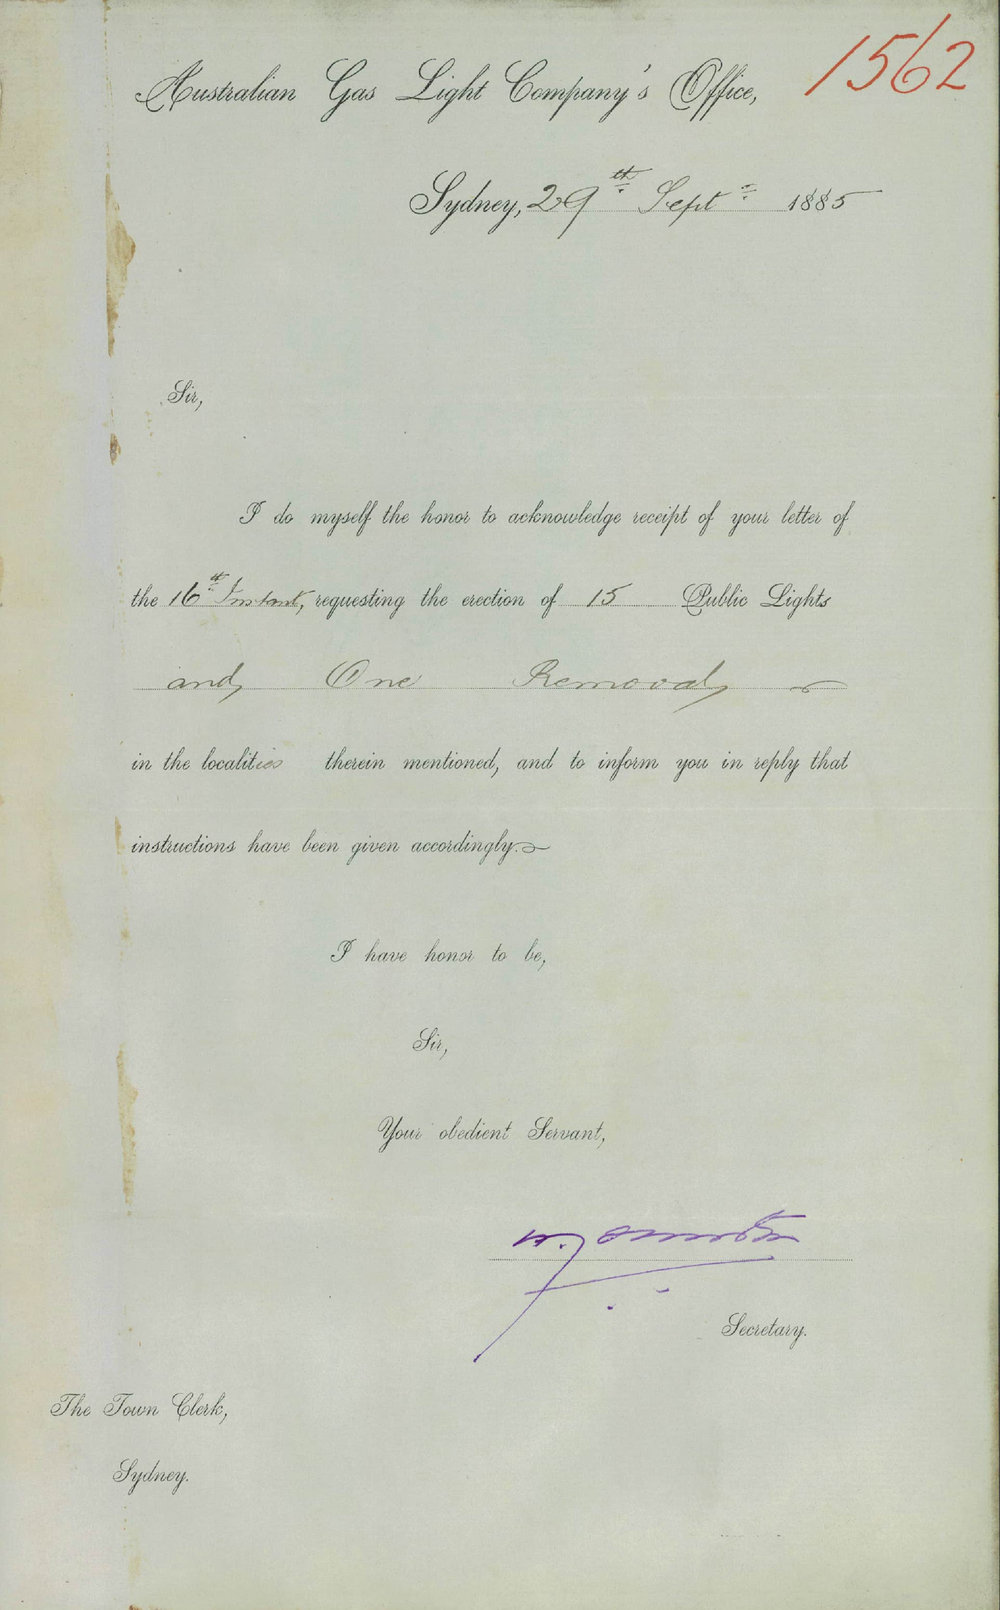 1562
Australian Gas Light Company's Office,
Sydney, 29th Sept 1885
Sir,
I do myself the honor to acknowledge receipt of your letter of
the 16th Instant, requesting the erection of 15 Public Lights
and One Removal
in the localities therein mentioned, and to inform you in reply that
instructions have been given accordingly.
I have honor to be,
Sir,
Your obedient Servant,
Secretary.
The Town Clerk,
Sydney.